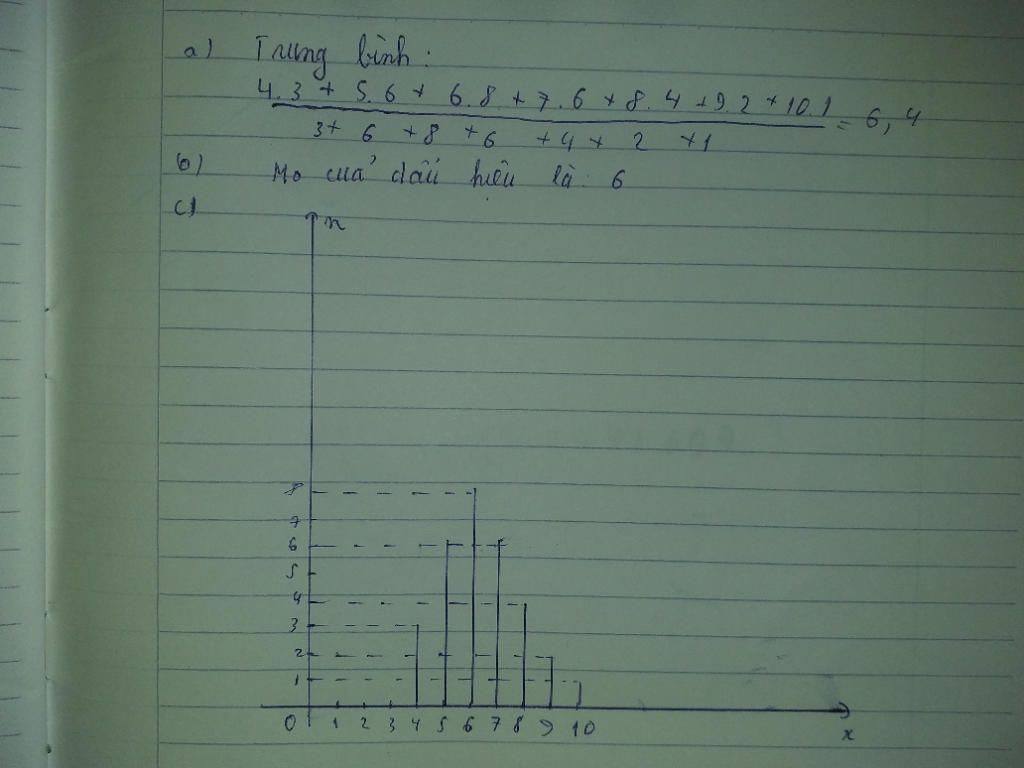 a) Trung bình:
4.3 + 5.6 + 6.8 + 7.6 + 8.4 + 9.2 + 10.1 = 6,4
3+ 6 +8 +6 +4+ 2 +1
b) Mo của dấu hiệu là: 6
c)
n
8
7
6
5
4
3
2
1
0 1 2 3 4 5 6 7 8 9 10
x